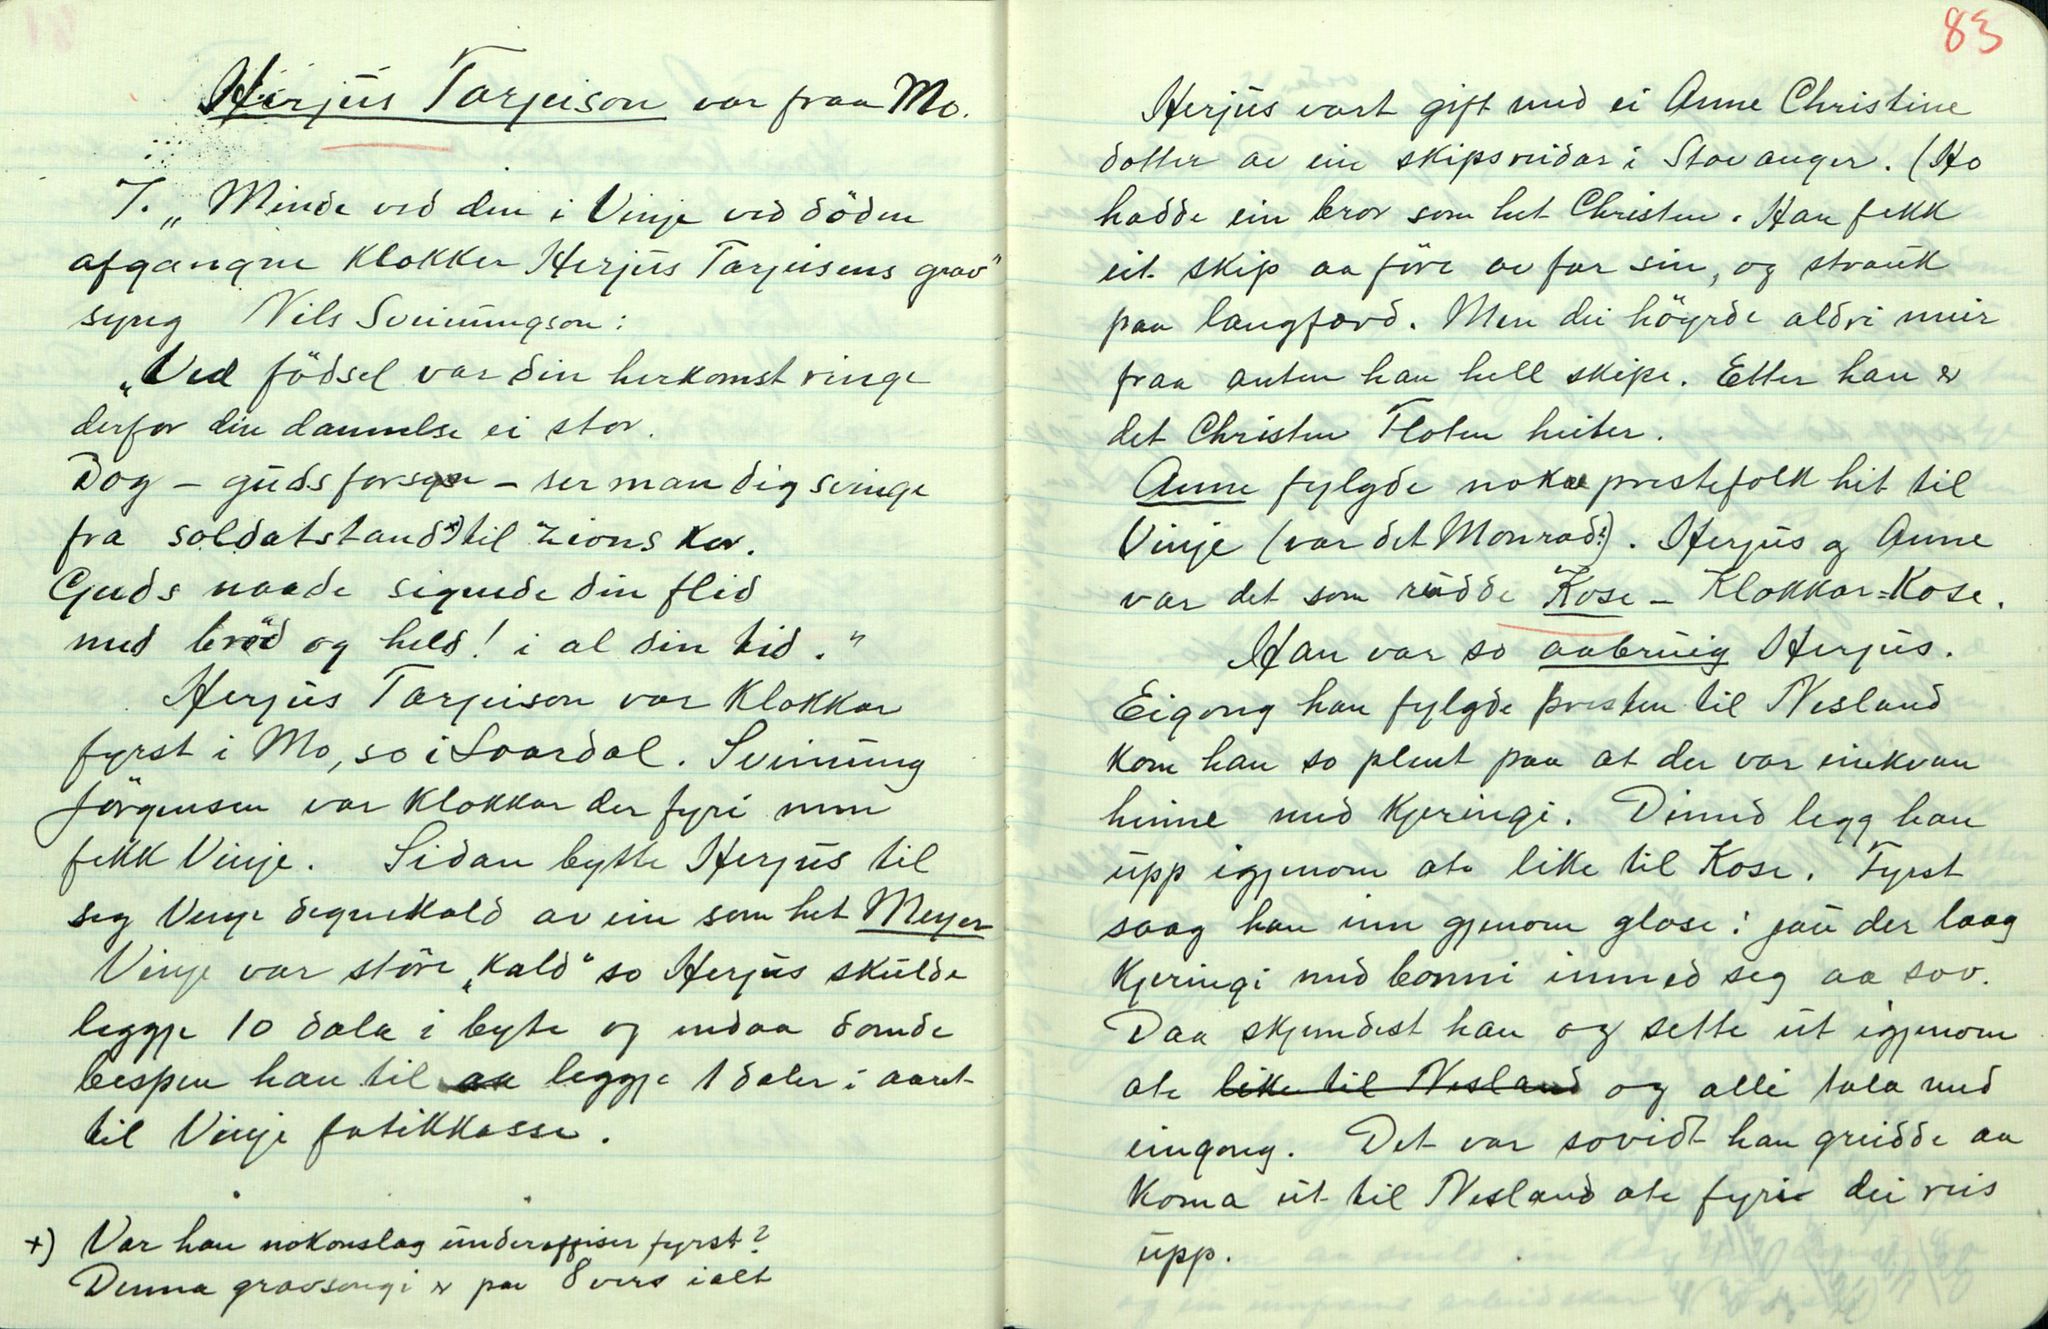 Herjus Tarjeison var fraa Mo.
I. „Minde ved den i Vinje ved döden
afgangne Klokker Herjus Tarjeisens grav"
syng Nils Sveinungson:
„Ved födsel var din herkomst ringe
derfor din dannelse ei stor.
Dog – guds forsyn – ser man dig svinge
fra soldatstand x) til Zions Kor.
Guds naade signede din flid
med bröd og held! i al din tid."
Herjus Tarjeison var Klokkar
fyrst i Mo, so i Laardal. Sveinung
Jörgensen var Klokkar der fyri men
fekk Vinje. Sidan bytte Herjus til
seg Vinje degnekald av ein som het Meyer
Vinje var störe „Kald" so Herjus skulde
leggje 10 dala i byte og endaa dömde
bespen han til aa leggje 1 daler i aaret
til Vinje fatikkasse.
+) Var han nokonslag underoffiser fyrst?
Denna gravsongi er paa 8 vers ialt
83
Herjus vart gift med ei Anne Christine
dotter av ein skipsreidar i Stavanger. (Ho
hadde ein bror som het Christen. Han fekk
eit skip aa före av far sin, og strauk
paa langfærd. Men dei höyrde aldri meir
fraa anten han hell skipe. Etter han er
det Christen Floten heiter.
Anne fylgde noko prestefolk hit til
Vinje (var det Monrad?). Herjus og Anne
var det som rudde Kose – Klokkar-Kose.
Han var so aabruig Herjus.
Eigong han fylgde presten til Nesland
kom han so plent paa at der var einkvan
hinne med Kjeringi. Dermed legg han
upp igjenom ate like til Kose. Fyrst
saag han inn gjenom glase: jau der laag
Kjeringi med bonni innmed seg aa sov.
Daa skjemdest han og sette ut igjenom
ate like til Nesland og alli tala med
eingong. Det var sovidt han greidde aa
koma ut til Nesland ate fyri dei reis
upp.